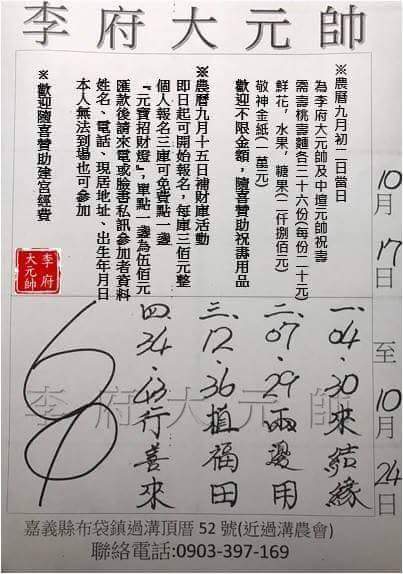 李府大元帥
※農曆九月初二日當日
為李府大元帥及中壇元帥祝壽
需壽桃壽麵各三十六份(每份二十元)
鮮花，水果，糖果(二仟捌佰元)
敬神金紙(一萬元)
歡迎不限金額，隨喜贊助祝壽用品
※農曆九月十五日補財庫活動
即日起可開始報名，每庫三佰元整
個人報名三庫可免費點一盞
『元寶招財燈』，單點一盞為伍佰元
匯款後請來電或臉書私訊參加者資料
姓名、電話、現居地址、出生年月日
本人無法到場也可參加
※歡迎隨喜贊助建宮經費
李府
大元帥
10月17日至10月24日
李府大元帥
一、04.30來結緣
二、07.29兩邊用
三、12.36植福田
四、34.43行善來
嘉義縣布袋鎮過溝頂厝52號(近過溝農會)
聯絡電話:0903-397-169